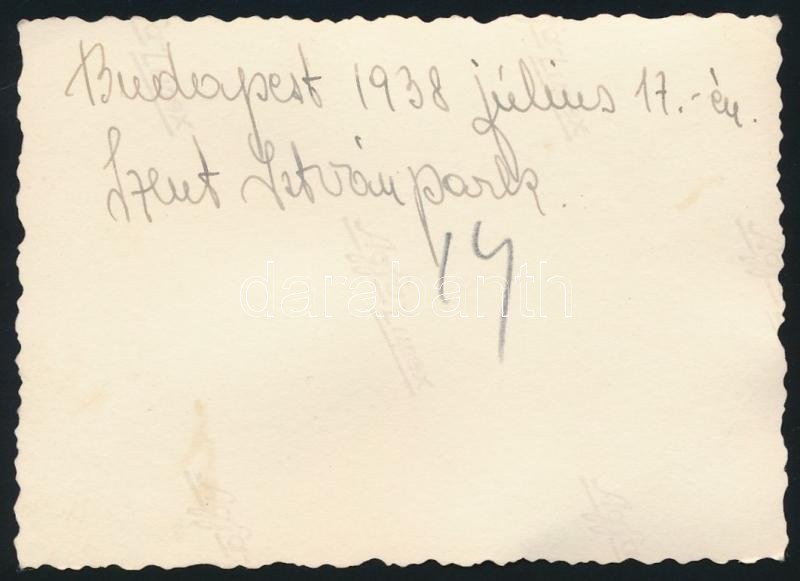 Budapest 1938 július 17.-én.
Szent Istvánpark.
14
darabanth